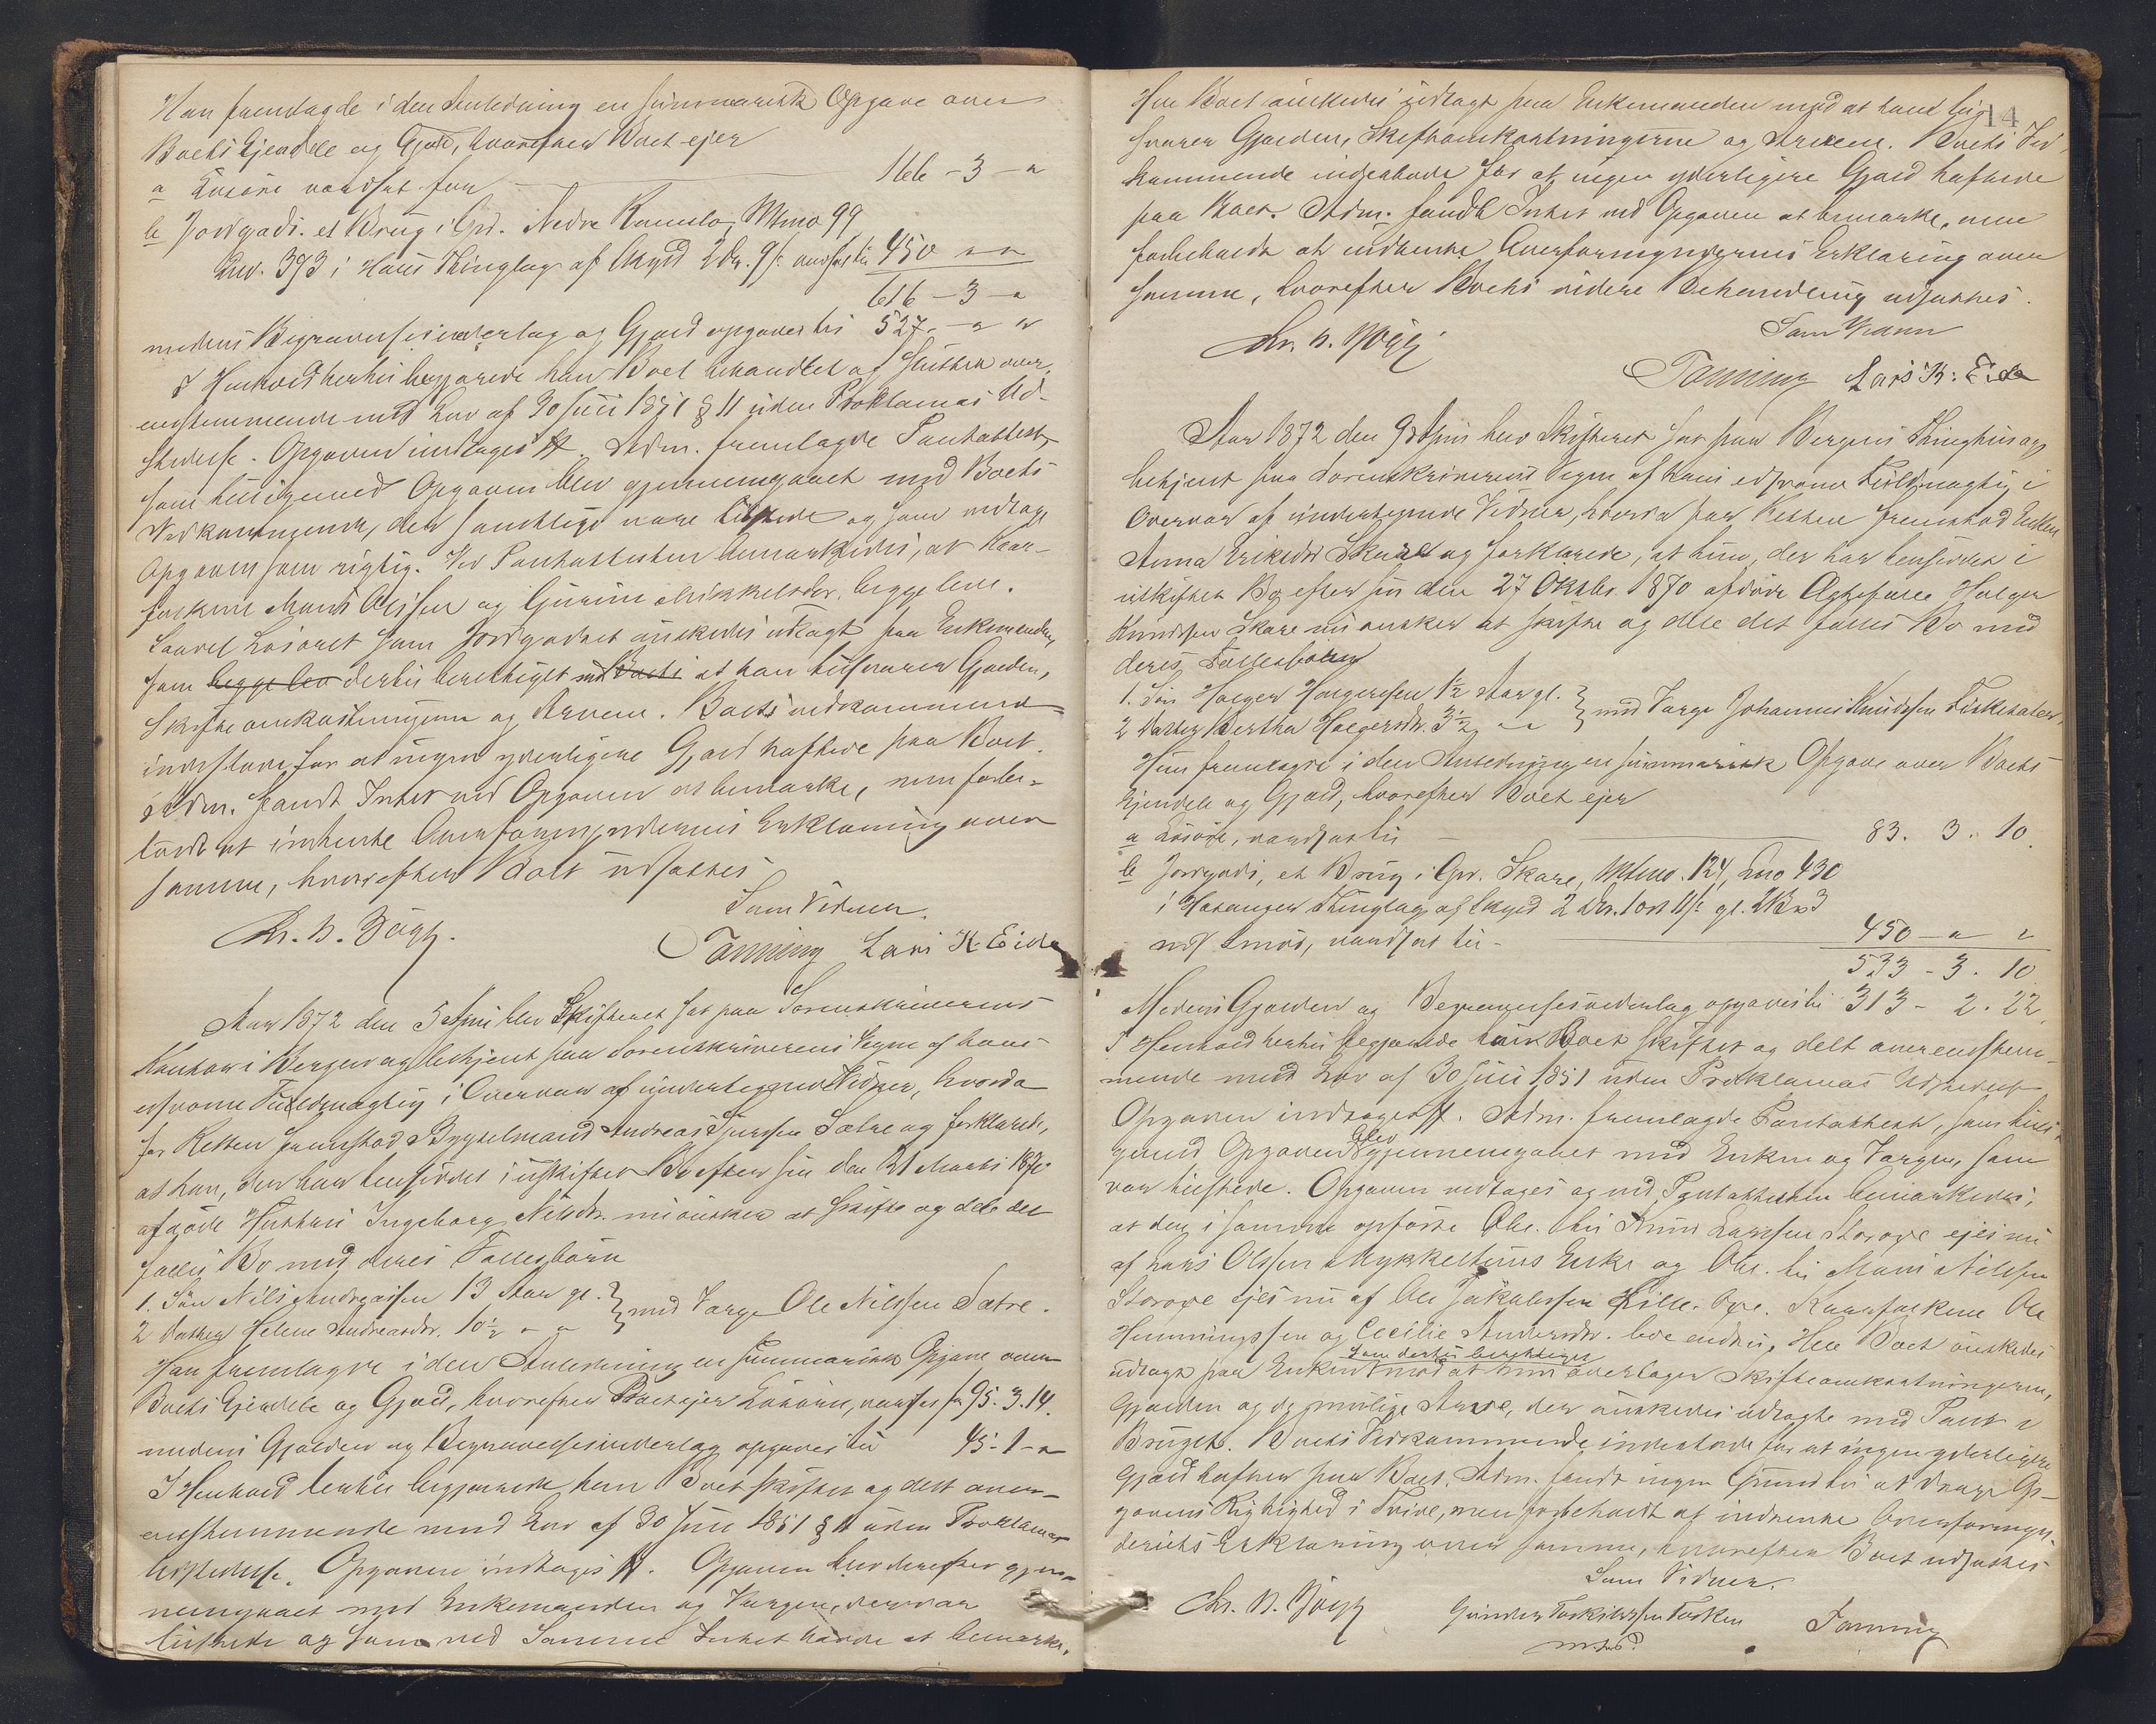 Han fremlagde i den Anledning en summarisk Opgave over
Boets Eiendele og Gjæld, hvorefter Boet ejer
a Løsøre værdsat for 166 - 3 - "
b Jordgods. et Brug i Grd. Nedre Mtno 99
Lno. 393 i Haus Thinglag af Skyld 2 Dr. 9 s. værdsat til 450 " "
616 - 3 - "
medens Begravelsesvederlag og Gjæld opgaves til 527. - " "
I Henhold hertil begjærede han Boet behandlet af Skifteret over-
ensstemmende med Lov af 30 Juli 1851 § 11 uden Proklamas Ud-
stedelse. Opgaven indtages st. Adm. fremlagde Pantattest,
som tilligemed Opgaven blev gjennemgaaet med Boets
Vedkommende, der samtlige vare tilstede og som vedtog
Opgaven som rigtig. Ved Pantattesten bemærkedes, at Kaar-
folkene Mons Olsen og Gurine Mikkelsdr. begge leve.
Saavel Løsøret som Jordgodset ønskedes udlagt paa Enkemanden,
som begge lev dertil berettiget mod Boets at han tilsvarer Gjælden,
Skifteomkostningerne og Arvene. Boets vedkommende
indestode for at ingen yderligere Gjæld haftede paa Boet.
Adm. fandt Intet ved Opgaven at bemærke, men forbe-
holdt at indhente Overformynderiets Erklæring over
samme, hvorefter Boet udsattes
Chr. B. Bøgh. Som Vidner.
Tanning Lars K. Eide
Aar 1872 den 5 April blev Skifteret sat paa Sorenskriverens
Kontor i Bergen og betjent paa Sorenskriverens Vegne af hans
edsvorne Fuldmægtig i Overvær af undertegnede Vidner, hvorda
for Retten fremstod Bygselmand Andreas Sjursen Sætre og forklarede,
at han, der har hensiddet i uskiftet Bo efter sin den 21 Marts 1870
afgåede Hustru Ingeborg Nilsdr. nu ønsker at skifte og dele det
fælles Bo med deres Fællesbørn
1. Søn Nils Andreassen 13 Aar gl.
2 Datter Helene Andreasdr. 10½ " " } med Verge Ole Nilssen Sætre.
Han fremlagde i den Anledning en summarisk Opgave over
Boets Eiendele og Gjæld, hvorefter Boet ejer Løsøre, værdsat for 95. 3. 14.
medens Gjælden og Begravelsesvederlag opgaves til 45 - 1 - "
I Henhold hertil begjærede han Boet skiftet og delt over-
ensstemmende med Lov af 30 Juli 1851 § 11 uden Proklamas
Udstedelse. Opgaven indtages st. Opgaven blev derefter gjen-
nemgaaet med Enkemanden og Vergen, der var
tilstede og som ved Samme Intet havde at bemærke.
14
Hele Boet ønskedes udlagt paa Enkemanden mod at han til-
svarer Gjælden, Skifteomkostningerne og Arvene. Boets Ved-
kommende indestode for at ingen yderligere Gjæld haftede
paa Boet. Adm. fandt Intet ved Opgaven at bemærke, men
forbeholdt at indhente Overformynderiets Erklæring over
samme, hvorefter Boets videre Behandling udsattes.
Chr. B. Bøgh Som Vidner
Tanning Lars K. Eide
Aar 1872 den 9 April blev Skifteret sat paa Bergens Thinghus og
betjent paa Sorenskriverens Vegne af hans edsvorne Fuldmægtig i
Overvær af undertegnede Vidner, hvorda for Retten fremstod Enken
Anna Eriksdr Skare og forklarede, at hun, der har hensiddet i
uskiftet Bo efter sin den 27 Oktbr. 1870 afdøde Ægtefælle Holger
Knudsen Skare nu ønsker at skifte og dele det fælles Bo med
deres Fællesbørn
1. Søn Holger Holgersen 1½ Aar gl.
2 Datter Bertha Holgersdr. 3½ " " } med Verge Johannes Knudsen
Hun fremlagde i den Anledning en summarisk Opgave over Boets
Eiendele og Gjæld, hvorefter Boet ejer
a Løsøre, værdsat til 83. 3. 10.
b Jordgods, et Brug i Grd. Skare, Mtno. 124, Lno 430
i Hosanger Thinglag af Skyld 2 Dr. 1 ort 11 s. gl.
Smør, værdsat til - 450 - " "
533 - 3. 10
Medens Gjælden og Begravelsesvederlag opgaves til 313 - 2. 22.
I Henhold hertil begjærede hun Boet skiftet og delt overensstem-
mende med Lov af 30 Juli 1851 uden Proklamas Udstedelse
Opgaven indtages st. Adm. fremlagde Pantattest, som tilli-
gemed Opgaven blev gjennemgaaet med Enken og Vergen, som
var tilstede. Opgaven vedtages og ved Pantattesten bemærkedes,
at den i samme opførte Obl. til Larsen Storøre ejes nu
af Lars Olsen Mykkeltuns Enke og Obl. til Mons Nilsen
Storøre ejes nu af Ole Jakobssen Lille- . Kaarfolkene Ole
Henningssen og Cecilie Andersdr. leve endnu. Hele Boet ønskedes
udlagt paa Enken som dertil berettiget mod at hun overtager Skifteomkostningerne,
Gjælden og de mulige Arve, der ønskedes udlagte med Pant i
Bruget. Boets Vedkommende indestode for at ingen yderligere
Gjæld hefter paa Boet. Adm. fandt ingen Grund til at drage Op-
gavens Rigtighed i Tvivl, men forbeholdt at indhente Overformyn-
deriets Erklæring over samme, hvorefter Boet udsattes
Som Vidner.
Chr. B. Bøgh Tanning